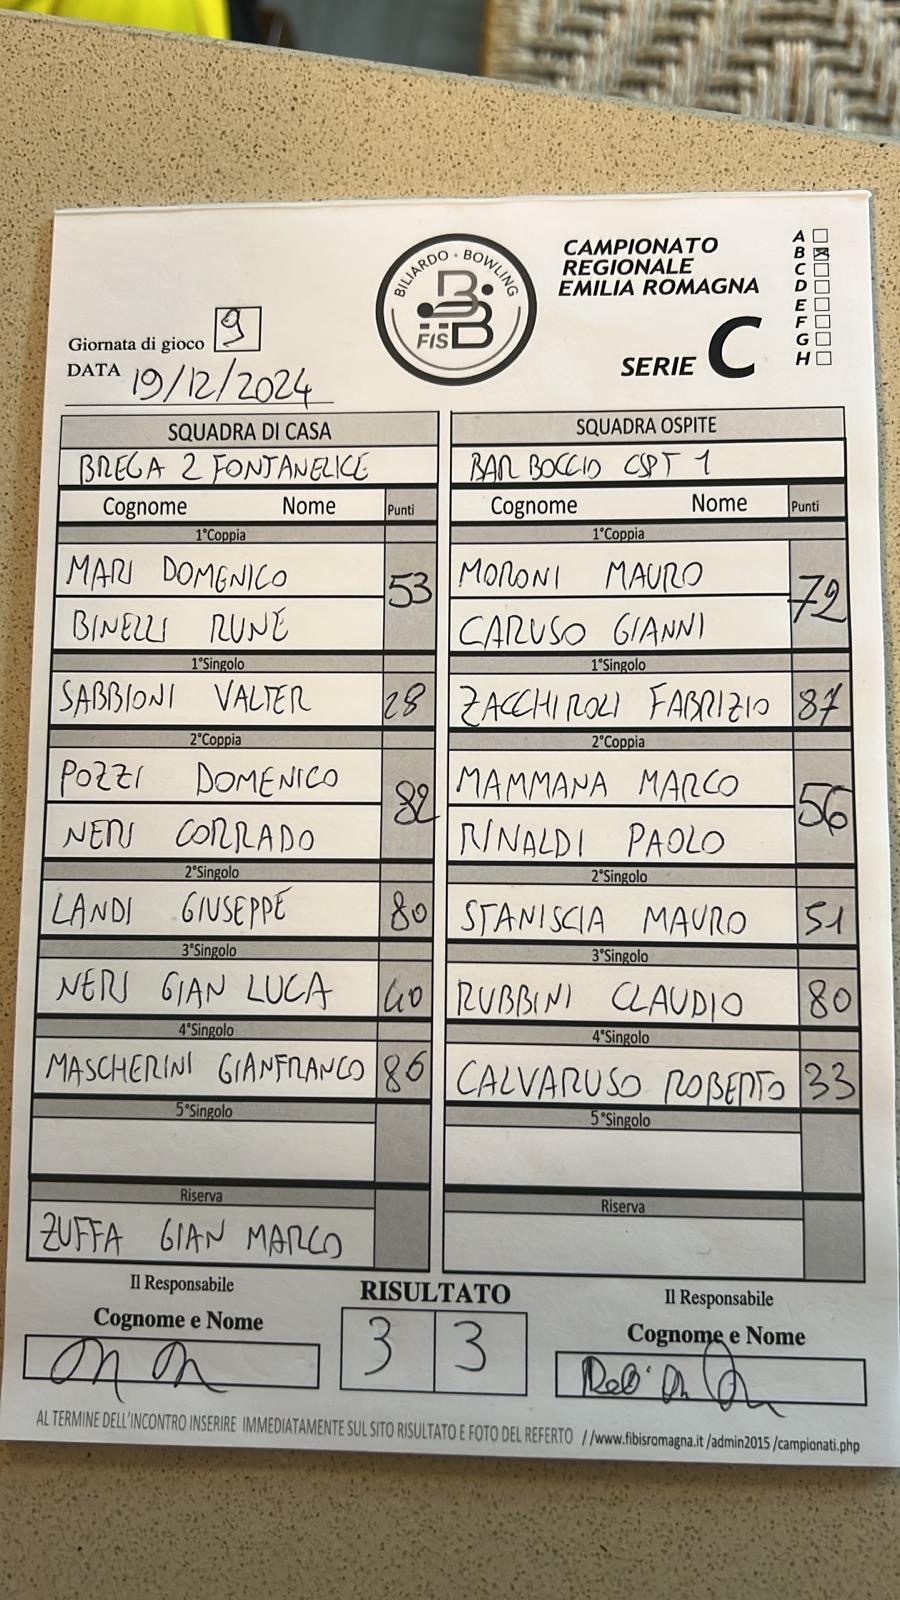 BILIARDO · BOWLING
FISBB
CAMPIONATO
REGIONALE
EMILIA ROMAGNA
SERIE C
A
B
C
D
E
F
G
H
Giornata di gioco 9
DATA 19/12/2024
SQUADRA DI CASA
BREGA 2 FONTANELICE
Cognome Nome Punti
1°Coppia
MARI DOMENICO 53
BINELLI RUNE
1°Singolo
SABBIONI VALTER 28
2°Coppia
POZZI DOMENICO 82
NERI CORRADO
2°Singolo
LANDI GIUSEPPE 80
3°Singolo
NERI GIAN LUCA 40
4°Singolo
MASCHERINI GIANFRANCO 86
5°Singolo
Riserva
ZUFFA GIAN MARCO
Il Responsabile
Cognome e Nome
SQUADRA OSPITE
BAR BOCCIO CSPT 1
Cognome Nome Punti
1°Coppia
MORONI MAURO 72
CARUSO GIANNI
1°Singolo
ZACCHIROLI FABRIZIO 87
2°Coppia
MAMMANA MARCO 56
RINALDI PAOLO
2°Singolo
STANISCIA MAURO 51
3°Singolo
RUBBINI CLAUDIO 80
4°Singolo
CALVARUSO ROBERTO 33
5°Singolo
Riserva
Il Responsabile
Cognome e Nome
RISULTATO
3 3
AL TERMINE DELL'INCONTRO INSERIRE IMMEDIATAMENTE SUL SITO RISULTATO E FOTO DEL REFERTO //www.fibisromagna.it /admin2015 /campionati.php